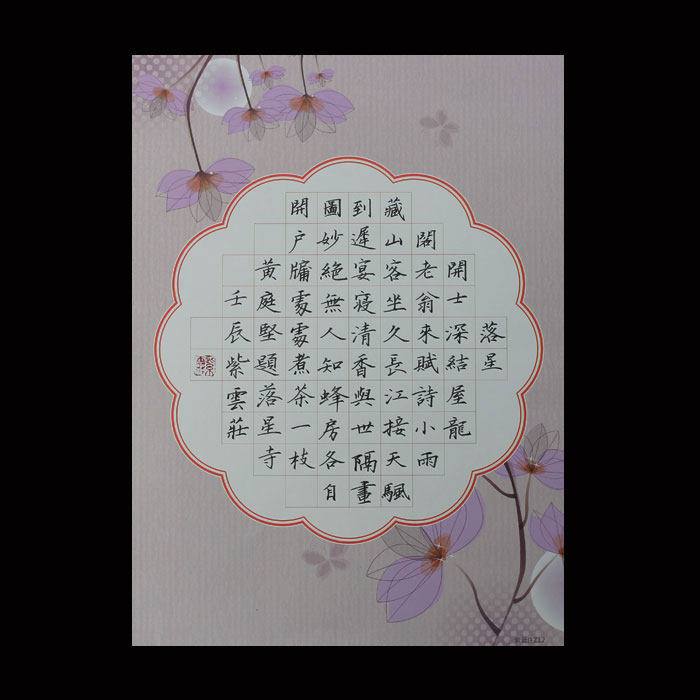 落星
開士深結屋龍
閣老翁來賦詩小雨
藏山客坐久長江接天颿
到遲宴寢清香與世隔畫
圖妙絕無人知蜂房各自
開户牖處處煮茶一枝
黃庭堅題落星寺
壬辰紫雲莊